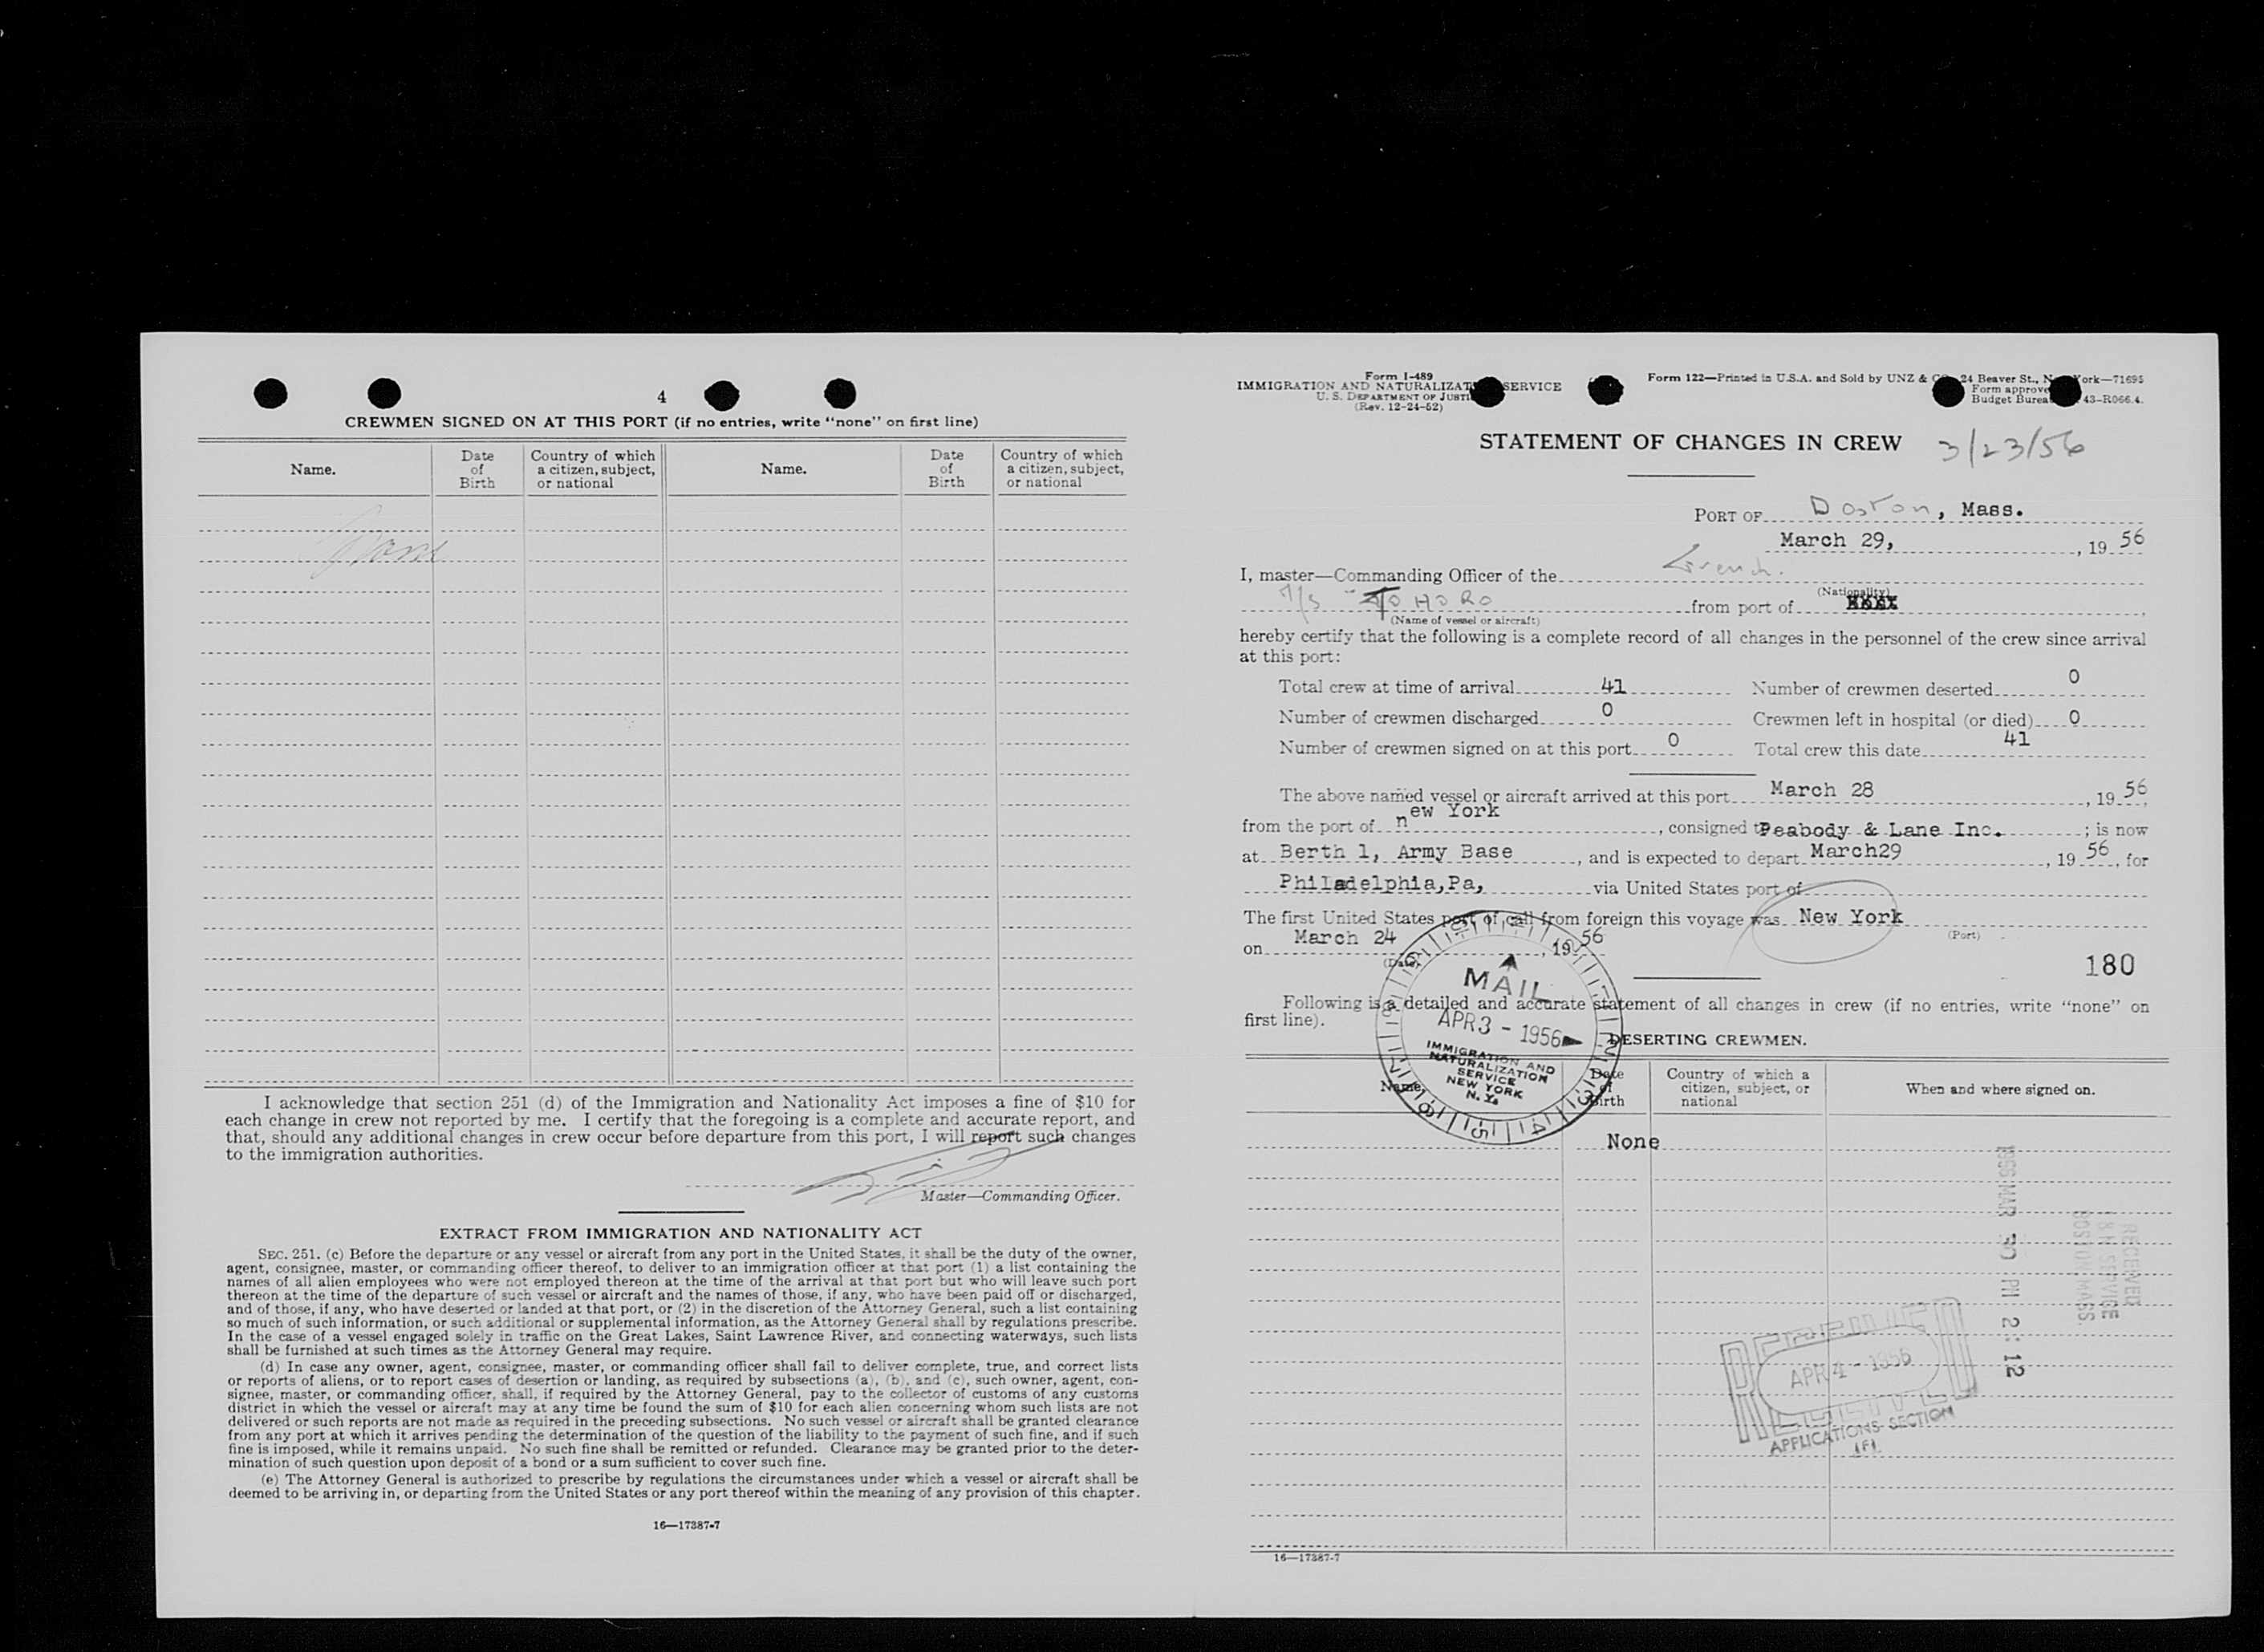 4
CREWMEN SIGNED ON AT THIS PORT (if no entries, write "none" on first line)
Name. Date of Birth Country of which a citizen, subject, or national Name. Date of Birth Country of which a citizen, subject, or national
None
I acknowledge that section 251 (d) of the Immigration and Nationality Act imposes a fine of $10 for
each change in crew not reported by me. I certify that the foregoing is a complete and accurate report, and
that, should any additional changes in crew occur before departure from this port, I will report such changes
to the immigration authorities.
Master—Commanding Officer.
EXTRACT FROM IMMIGRATION AND NATIONALITY ACT
SEC. 251. (c) Before the departure or any vessel or aircraft from any port in the United States, it shall be the duty of the owner,
agent, consignee, master, or commanding officer thereof, to deliver to an immigration officer at that port (1) a list containing the
names of all alien employees who were not employed thereon at the time of the arrival at that port but who will leave such port
thereon at the time of the departure of such vessel or aircraft and the names of those, if any, who have been paid off or discharged,
and of those, if any, who have deserted or landed at that port, or (2) in the discretion of the Attorney General, such a list containing
so much of such information, or such additional or supplemental information, as the Attorney General shall by regulations prescribe.
In the case of a vessel engaged solely in traffic on the Great Lakes, Saint Lawrence River, and connecting waterways, such lists
shall be furnished at such times as the Attorney General may require.
(d) In case any owner, agent, consignee, master, or commanding officer shall fail to deliver complete, true, and correct lists
or reports of aliens, or to report cases of desertion or landing, as required by subsections (a), (b), and (c), such owner, agent, con-
signee, master, or commanding officer, shall, if required by the Attorney General, pay to the collector of customs of any customs
district in which the vessel or aircraft may at any time be found the sum of $10 for each alien concerning whom such lists are not
delivered or such reports are not made as required in the preceding subsections. No such vessel or aircraft shall be granted clearance
from any port at which it arrives pending the determination of the question of the liability to the payment of such fine, and if such
fine is imposed, while it remains unpaid. No such fine shall be remitted or refunded. Clearance may be granted prior to the deter-
mination of such question upon deposit of a bond or a sum sufficient to cover such fine.
(e) The Attorney General is authorized to prescribe by regulations the circumstances under which a vessel or aircraft shall be
deemed to be arriving in, or departing from the United States or any port thereof within the meaning of any provision of this chapter.
16—17387-7
Form I-489
IMMIGRATION AND NATURALIZAT SERVICE
U. S. DEPARTMENT OF JUSTI
(Rev. 12-24-52)
Form 122—Printed in U.S.A. and Sold by UNZ & 24 Beaver St., N ork—71695
Form approve
Budget Burea 43-R066.4.
STATEMENT OF CHANGES IN CREW 3/23/56
PORT OF Boston, Mass.
March 29, , 19 56
I, master—Commanding Officer of the French.
(Nationality)
M/S "JOHORO from port of XXXX
(Name of vessel or aircraft)
hereby certify that the following is a complete record of all changes in the personnel of the crew since arrival
at this port:
Total crew at time of arrival 41 Number of crewmen deserted 0
Number of crewmen discharged 0 Crewmen left in hospital (or died) 0
Number of crewmen signed on at this port 0 Total crew this date 41
The above named vessel or aircraft arrived at this port March 28 , 19 56,
from the port of new York , consigned t Peabody & Lane Inc. ; is now
at Berth 1, Army Base , and is expected to depart March29 , 19 56, for
Philadelphia,Pa, via United States port of
The first United States port of call from foreign this voyage was New York
(Port)
on March 24 , 19 56
(Date)
180
Following is a detailed and accurate statement of all changes in crew (if no entries, write "none" on
first line).
MAIL
APR 3 - 1956
IMMIGRATION AND
NATURALIZATION
SERVICE
NEW YORK
N. Y.
DESERTING CREWMEN.
Name. Date of Birth Country of which a citizen, subject, or national When and where signed on.
None
1956 MAR 30 PM 2:12
RECEIVED
I & N SERVICE
BOSTON MASS.
RECEIVED
APR 4 - 1956
APPLICATIONS SECTION
16—17387-7